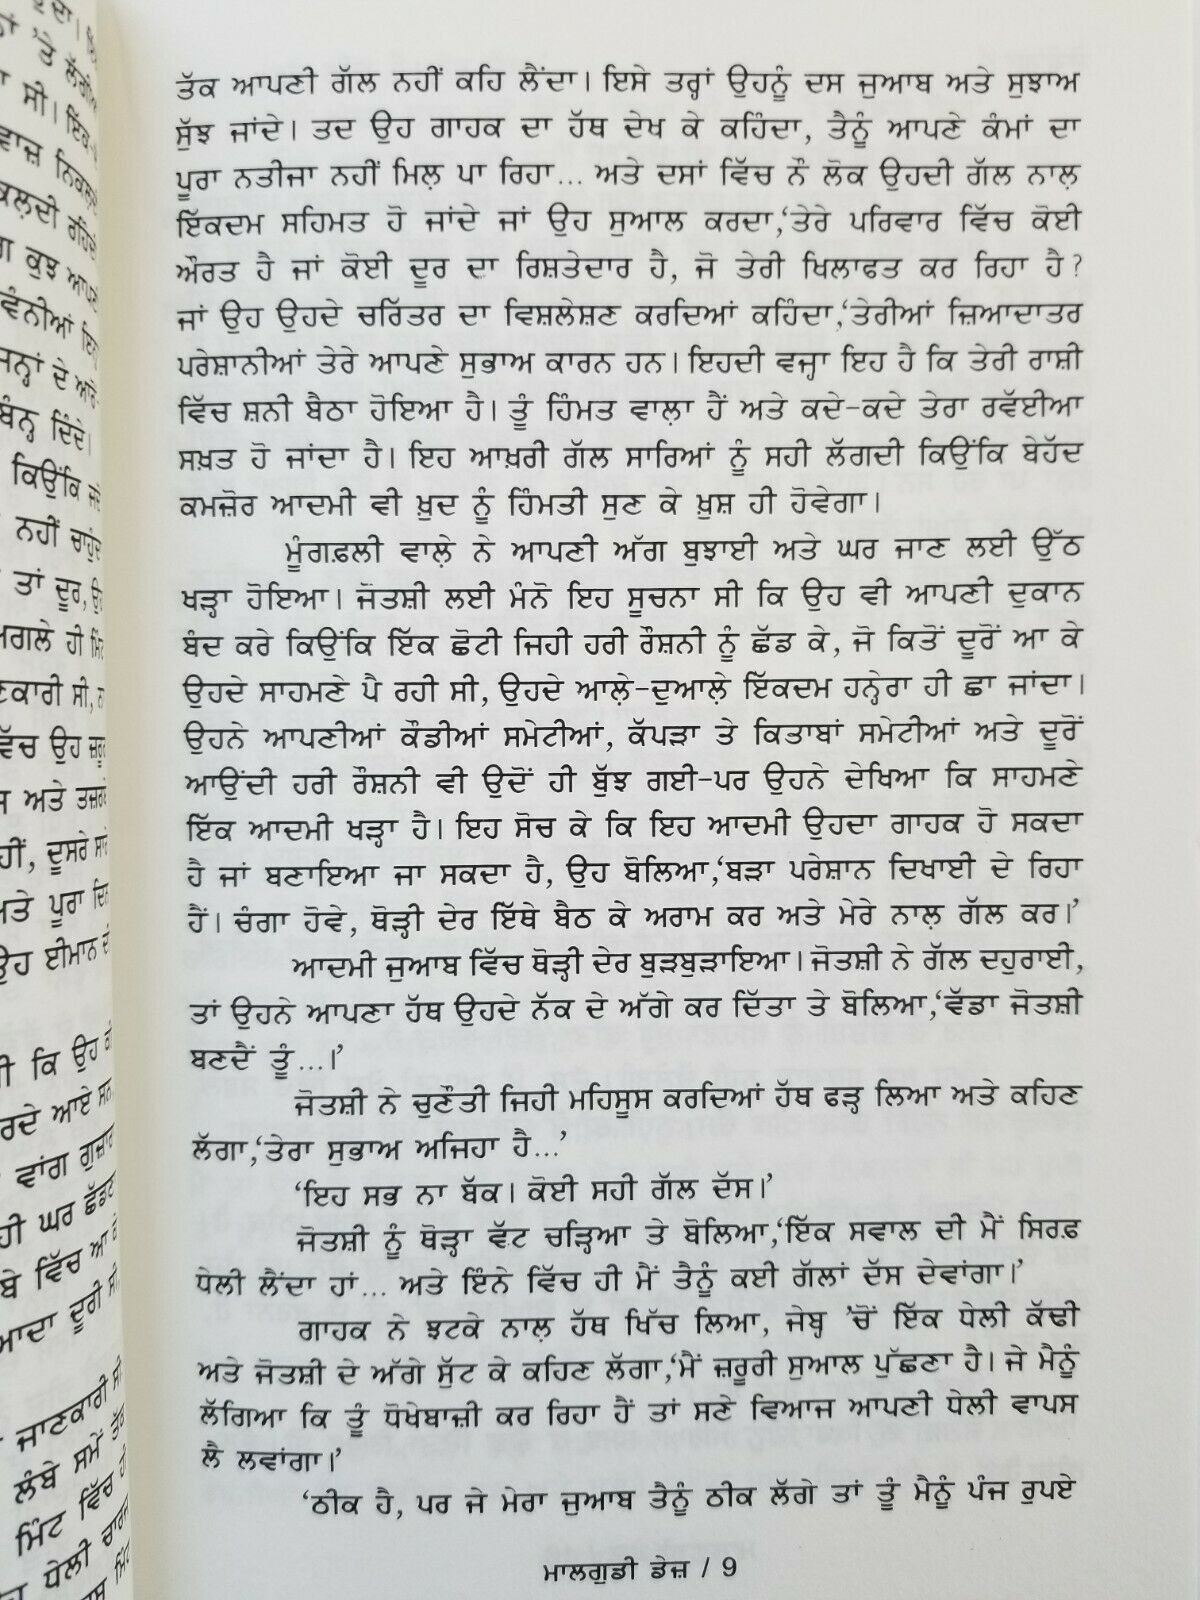 ਤੱਕ ਆਪਣੀ ਗੱਲ ਨਹੀਂ ਕਹਿ ਲੈਂਦਾ। ਇਸੇ ਤਰ੍ਹਾਂ ਉਹਨੂੰ ਦਸ ਜੁਆਬ ਅਤੇ ਸੁਝਾਅ
ਸੁੱਝ ਜਾਂਦੇ। ਤਦ ਉਹ ਗਾਹਕ ਦਾ ਹੱਥ ਦੇਖ ਕੇ ਕਹਿੰਦਾ, ਤੈਨੂੰ ਆਪਣੇ ਕੰਮਾਂ ਦਾ
ਪੂਰਾ ਨਤੀਜਾ ਨਹੀਂ ਮਿਲ਼ ਪਾ ਰਿਹਾ... ਅਤੇ ਦਸਾਂ ਵਿੱਚ ਨੌ ਲੋਕ ਉਹਦੀ ਗੱਲ ਨਾਲ਼
ਇੱਕਦਮ ਸਹਿਮਤ ਹੋ ਜਾਂਦੇ ਜਾਂ ਉਹ ਸੁਆਲ ਕਰਦਾ,‘ਤੇਰੇ ਪਰਿਵਾਰ ਵਿੱਚ ਕੋਈ
ਔਰਤ ਹੈ ਜਾਂ ਕੋਈ ਦੂਰ ਦਾ ਰਿਸ਼ਤੇਦਾਰ ਹੈ, ਜੋ ਤੇਰੀ ਖਿਲਾਫਤ ਕਰ ਰਿਹਾ ਹੈ?
ਜਾਂ ਉਹ ਉਹਦੇ ਚਰਿੱਤਰ ਦਾ ਵਿਸ਼ਲੇਸ਼ਣ ਕਰਦਿਆਂ ਕਹਿੰਦਾ,‘ਤੇਰੀਆਂ ਜ਼ਿਆਦਾਤਰ
ਪਰੇਸ਼ਾਨੀਆਂ ਤੇਰੇ ਆਪਣੇ ਸੁਭਾਅ ਕਾਰਨ ਹਨ। ਇਹਦੀ ਵਜ੍ਹਾ ਇਹ ਹੈ ਕਿ ਤੇਰੀ ਰਾਸ਼ੀ
ਵਿੱਚ ਸ਼ਨੀ ਬੈਠਾ ਹੋਇਆ ਹੈ। ਤੂੰ ਹਿੰਮਤ ਵਾਲ਼ਾ ਹੈਂ ਅਤੇ ਕਦੇ-ਕਦੇ ਤੇਰਾ ਰਵੱਈਆ
ਸਖ਼ਤ ਹੋ ਜਾਂਦਾ ਹੈ। ਇਹ ਆਖ਼ਰੀ ਗੱਲ ਸਾਰਿਆਂ ਨੂੰ ਸਹੀ ਲੱਗਦੀ ਕਿਉਂਕਿ ਬੇਹੱਦ
ਕਮਜ਼ੋਰ ਆਦਮੀ ਵੀ ਖ਼ੁਦ ਨੂੰ ਹਿੰਮਤੀ ਸੁਣ ਕੇ ਖ਼ੁਸ਼ ਹੀ ਹੋਵੇਗਾ।
ਮੂੰਗਫ਼ਲੀ ਵਾਲ਼ੇ ਨੇ ਆਪਣੀ ਅੱਗ ਬੁਝਾਈ ਅਤੇ ਘਰ ਜਾਣ ਲਈ ਉੱਠ
ਖੜ੍ਹਾ ਹੋਇਆ। ਜੋਤਸ਼ੀ ਲਈ ਮੰਨੋ ਇਹ ਸੂਚਨਾ ਸੀ ਕਿ ਉਹ ਵੀ ਆਪਣੀ ਦੁਕਾਨ
ਬੰਦ ਕਰੇ ਕਿਉਂਕਿ ਇੱਕ ਛੋਟੀ ਜਿਹੀ ਹਰੀ ਰੌਸ਼ਨੀ ਨੂੰ ਛੱਡ ਕੇ, ਜੋ ਕਿਤੋਂ ਦੂਰੋਂ ਆ ਕੇ
ਉਹਦੇ ਸਾਹਮਣੇ ਪੈ ਰਹੀ ਸੀ, ਉਹਦੇ ਆਲ਼ੇ-ਦੁਆਲ਼ੇ ਇੱਕਦਮ ਹਨ੍ਹੇਰਾ ਹੀ ਛਾ ਜਾਂਦਾ।
ਉਹਨੇ ਆਪਣੀਆਂ ਕੌਡੀਆਂ ਸਮੇਟੀਆਂ, ਕੱਪੜਾ ਤੇ ਕਿਤਾਬਾਂ ਸਮੇਟੀਆਂ ਅਤੇ ਦੂਰੋਂ
ਆਉਂਦੀ ਹਰੀ ਰੌਸ਼ਨੀ ਵੀ ਉਦੋਂ ਹੀ ਬੁੱਝ ਗਈ-ਪਰ ਉਹਨੇ ਦੇਖਿਆ ਕਿ ਸਾਹਮਣੇ
ਇੱਕ ਆਦਮੀ ਖੜ੍ਹਾ ਹੈ। ਇਹ ਸੋਚ ਕੇ ਕਿ ਇਹ ਆਦਮੀ ਉਹਦਾ ਗਾਹਕ ਹੋ ਸਕਦਾ
ਹੈ ਜਾਂ ਬਣਾਇਆ ਜਾ ਸਕਦਾ ਹੈ, ਉਹ ਬੋਲਿਆ,‘ਬੜਾ ਪਰੇਸ਼ਾਨ ਦਿਖਾਈ ਦੇ ਰਿਹਾ
ਹੈਂ। ਚੰਗਾ ਹੋਵੇ, ਥੋੜ੍ਹੀ ਦੇਰ ਇੱਥੇ ਬੈਠ ਕੇ ਅਰਾਮ ਕਰ ਅਤੇ ਮੇਰੇ ਨਾਲ਼ ਗੱਲ ਕਰ।’
ਆਦਮੀ ਜੁਆਬ ਵਿੱਚ ਥੋੜ੍ਹੀ ਦੇਰ ਬੁੜਬੁੜਾਇਆ। ਜੋਤਸ਼ੀ ਨੇ ਗੱਲ ਦਹੁਰਾਈ,
ਤਾਂ ਉਹਨੇ ਆਪਣਾ ਹੱਥ ਉਹਦੇ ਨੱਕ ਦੇ ਅੱਗੇ ਕਰ ਦਿੱਤਾ ਤੇ ਬੋਲਿਆ,‘ਵੱਡਾ ਜੋਤਸ਼ੀ
ਬਣਦੈਂ ਤੂੰ...।’
ਜੋਤਸ਼ੀ ਨੇ ਚੁਣੌਤੀ ਜਿਹੀ ਮਹਿਸੂਸ ਕਰਦਿਆਂ ਹੱਥ ਫੜ੍ਹ ਲਿਆ ਅਤੇ ਕਹਿਣ
ਲੱਗਾ,‘ਤੇਰਾ ਸੁਭਾਅ ਅਜਿਹਾ ਹੈ...’
‘ਇਹ ਸਭ ਨਾ ਬੱਕ। ਕੋਈ ਸਹੀ ਗੱਲ ਦੱਸ।’
ਜੋਤਸ਼ੀ ਨੂੰ ਥੋੜ੍ਹਾ ਵੱਟ ਚੜ੍ਹਿਆ ਤੇ ਬੋਲਿਆ,‘ਇੱਕ ਸਵਾਲ ਦੀ ਮੈਂ ਸਿਰਫ਼
ਧੇਲੀ ਲੈਂਦਾ ਹਾਂ... ਅਤੇ ਇੰਨੇ ਵਿੱਚ ਹੀ ਮੈਂ ਤੈਨੂੰ ਕਈ ਗੱਲਾਂ ਦੱਸ ਦੇਵਾਂਗਾ।’
ਗਾਹਕ ਨੇ ਝਟਕੇ ਨਾਲ਼ ਹੱਥ ਖਿੱਚ ਲਿਆ, ਜੇਬ੍ਹ ’ਚੋਂ ਇੱਕ ਧੇਲੀ ਕੱਢੀ
ਅਤੇ ਜੋਤਸ਼ੀ ਦੇ ਅੱਗੇ ਸੁੱਟ ਕੇ ਕਹਿਣ ਲੱਗਾ,‘ਮੈਂ ਜ਼ਰੂਰੀ ਸੁਆਲ ਪੁੱਛਣਾ ਹੈ। ਜੇ ਮੈਨੂੰ
ਲੱਗਿਆ ਕਿ ਤੂੰ ਧੋਖੇਬਾਜ਼ੀ ਕਰ ਰਿਹਾ ਹੈਂ ਤਾਂ ਸਣੇ ਵਿਆਜ ਆਪਣੀ ਧੇਲੀ ਵਾਪਸ
ਲੈ ਲਵਾਂਗਾ।’
‘ਠੀਕ ਹੈ, ਪਰ ਜੇ ਮੇਰਾ ਜੁਆਬ ਤੈਨੂੰ ਠੀਕ ਲੱਗੇ ਤਾਂ ਤੂੰ ਮੈਨੂੰ ਪੰਜ ਰੁਪਏ
ਮਾਲਗੁਡੀ ਡੇਜ਼ / 9